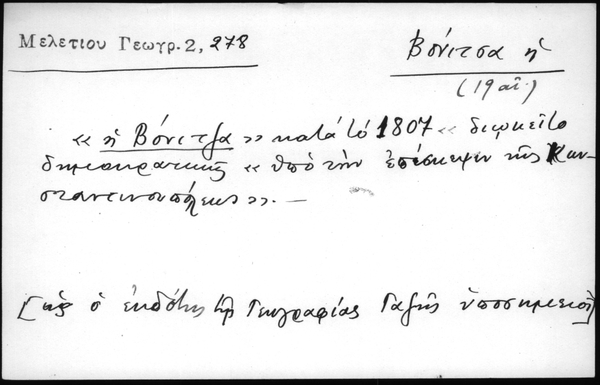 Μελετίου Γεωγρ. 2, 278
Βόνιτσα ἡ
(19 αἰ.)
« ἡ Βόνιτζα » κατά τό 1807 « διῳκεῖτο
δημοκρατικῶς « ὑπό τὴν ἐπίσκεψιν τῆς Κων-
σταντινουπόλεως ». —
[ὡς ὁ ἐκδότης τῆς Γεωγραφίας Γαζῆς ὑποσημειοῖ]